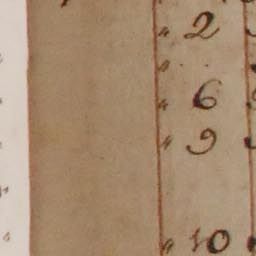 " 2
"
" 6
" 9
" 10